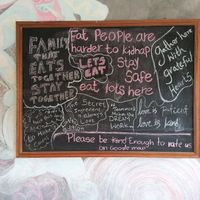 FAMILY
THAT
EATS
TOGETHER
STAY
TOGETHER
Fat People are
harder to kidnap
Stay
Safe
eat lots here
LETS
EAT
Gather here
with
grateful
Hearts
The Secret
is
Always
Love
DREAM
WORK
Love is Patient
Love is kind
Please be kind Enough to rate us
on Google map